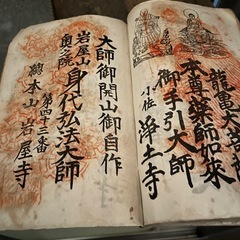 龍亀大
本尊薬師如来
御手引大師
小佐 浄土寺
大師御開山御自作
岩屋山
奥之院 身代弘法大師
第四十三番
本山 岩屋寺